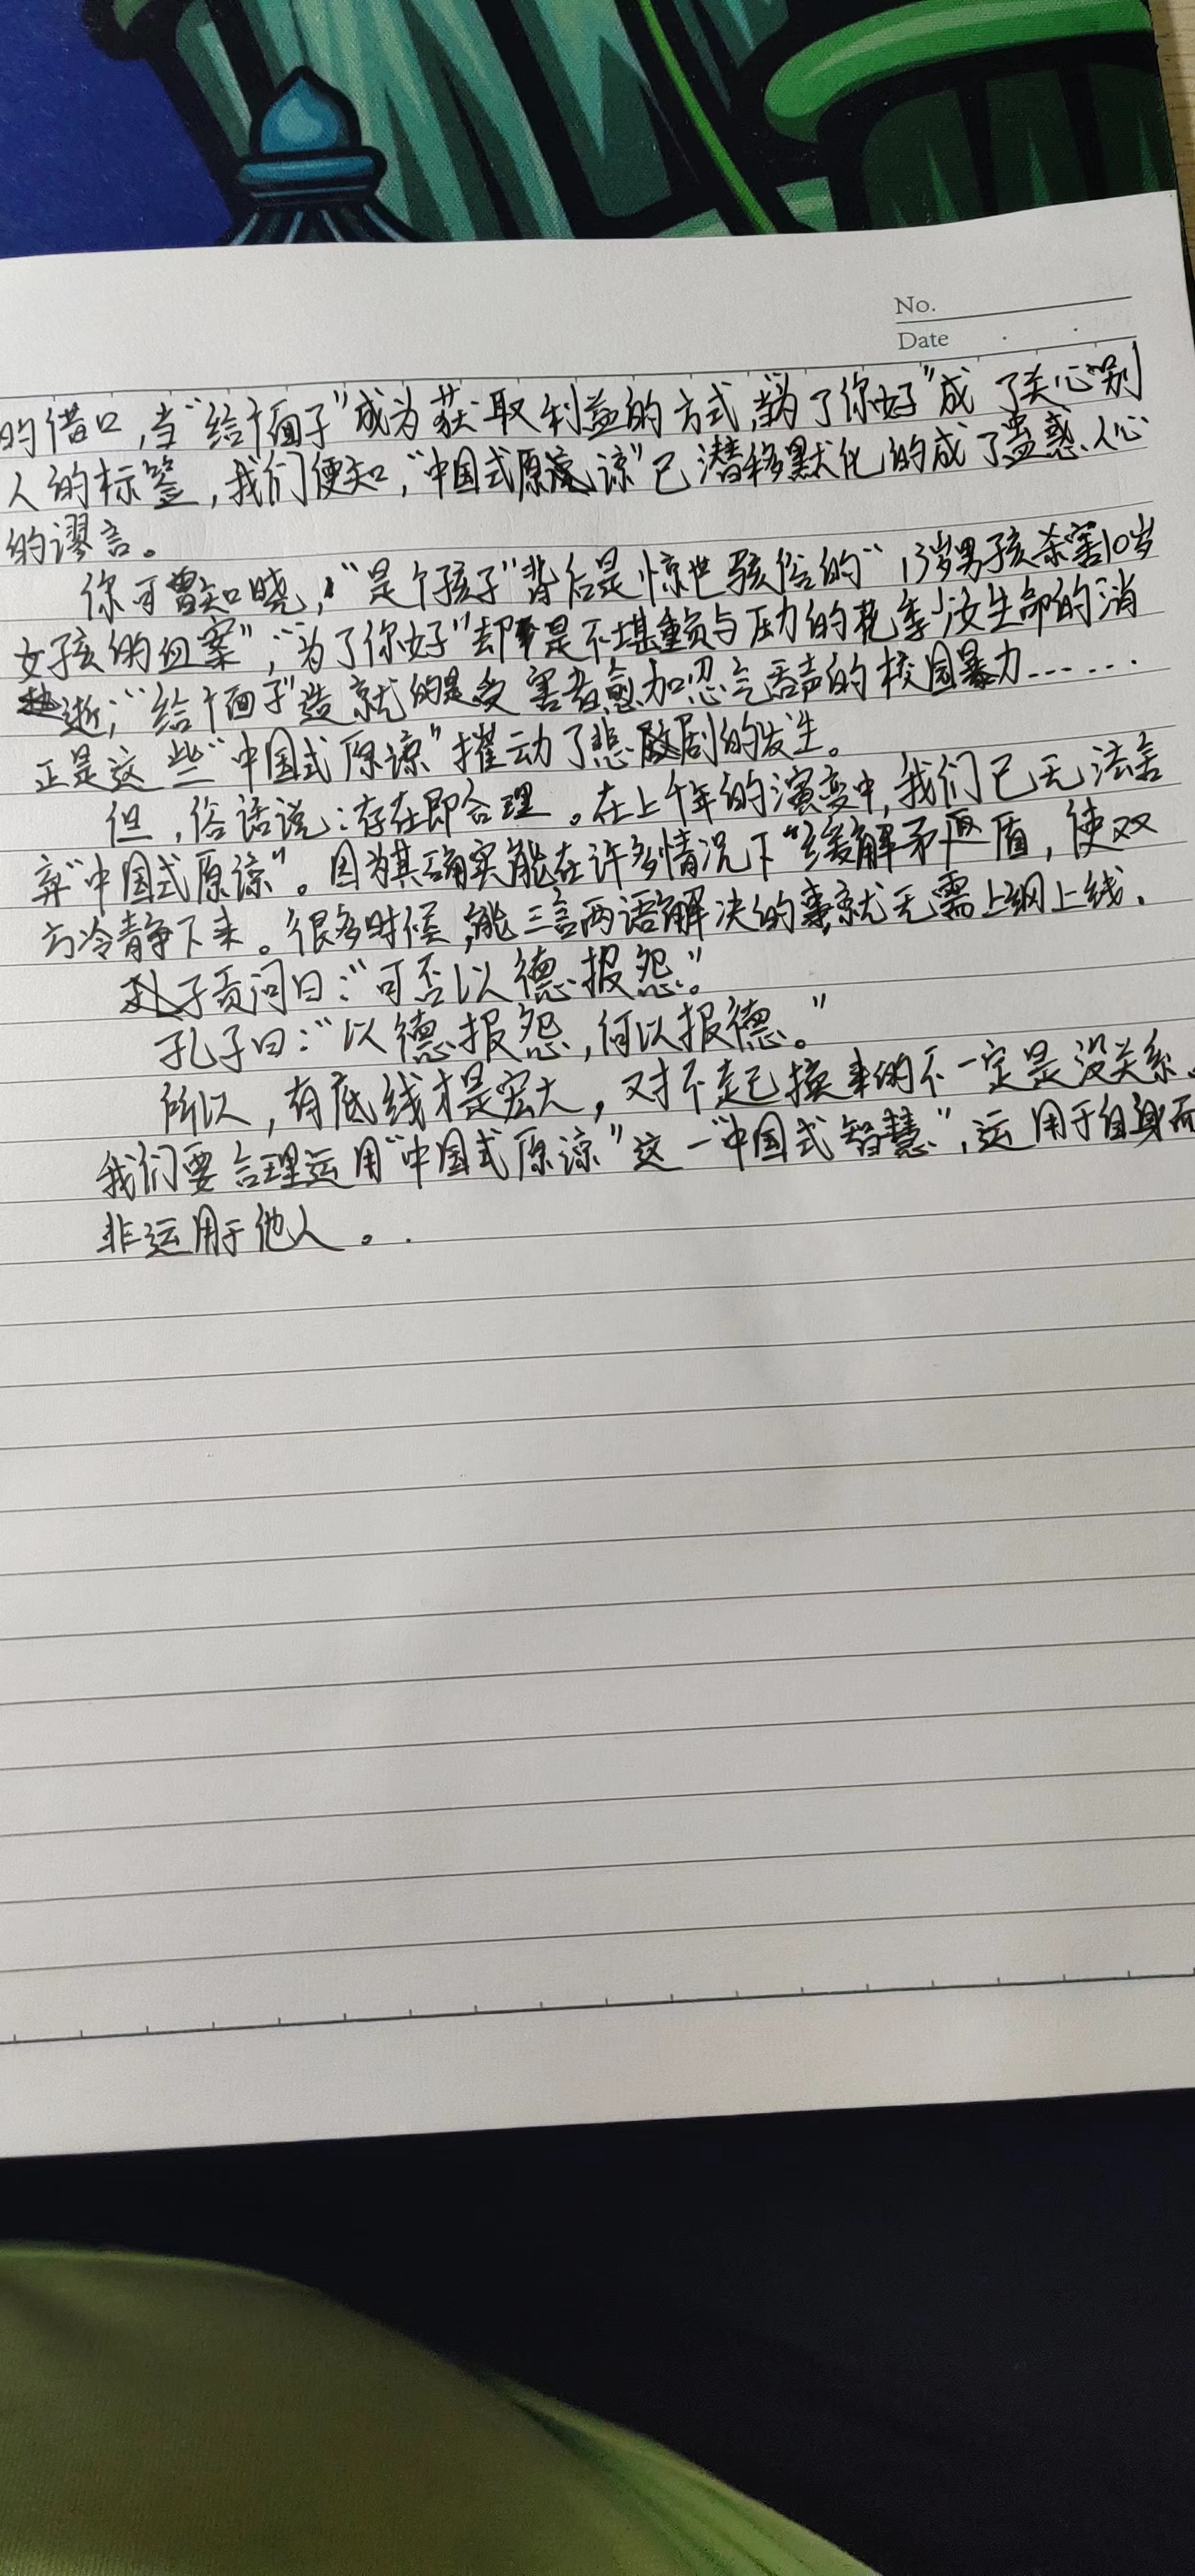 No.
Date
的借口,当“给个面子”成为获取利益的方式,当“为了你好”成了关心别
人的标签,我们便知,“中国式原谅”已潜移默化的成了蛊惑人心
的谬言。
你可曾知晓,“是个孩子”背后是惊世骇俗的“13岁男孩杀害10岁
女孩的血案”,“为了你好”却是不堪重负与压力的花季少女生命的消
逝;“给个面子”造就的是受害者愈加忍气吞声的校园暴力……
正是这些“中国式原谅”摧动了悲剧的发生。
但,俗话说:存在即合理。在上千年的演变中,我们已无法舍
弃“中国式原谅”。因为其确实能在许多情况下缓解矛盾,使双
方冷静下来。很多时候,能三言两语解决的事,就无需上纲上线.
子贡问曰:“可否以德报怨。”
孔子曰:“以德报怨,何以报德。”
所以,有底线才是宏大,对不起换来的不一定是没关系.
我们要合理运用“中国式原谅”这一“中国式智慧”,运用于自身而
非运用于他人。.